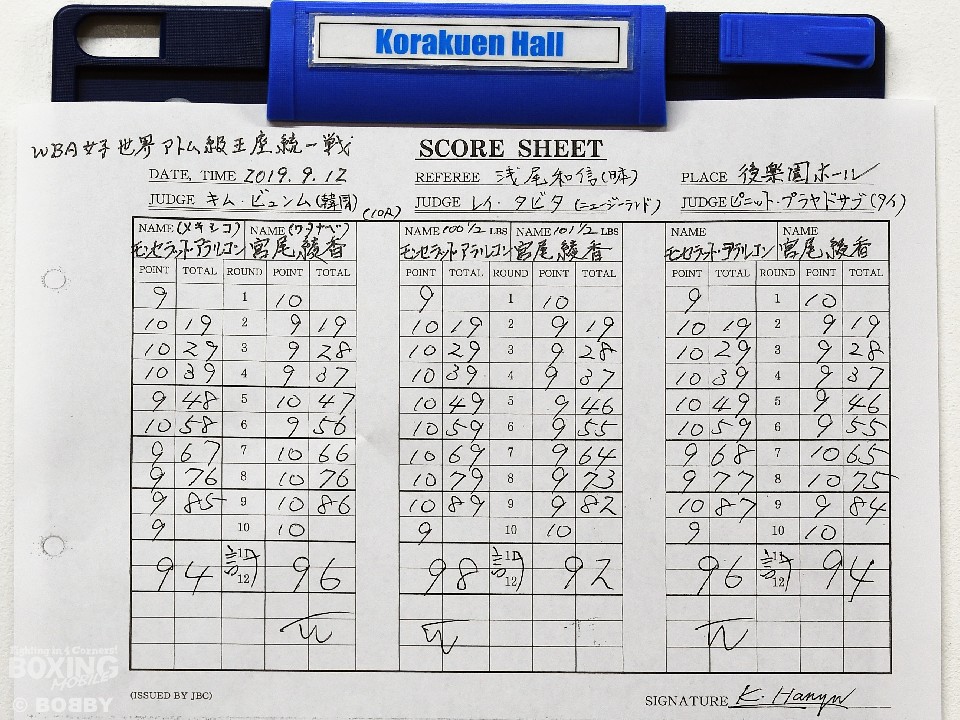 Korakuen Hall
WBA女子世界アトム級王座統一戦
SCORE SHEET
DATE, TIME 2019. 9. 12 REFEREE 浅尾和信(日本) PLACE 後楽園ホール
JUDGE キム・ビュンム(韓国) (10R) JUDGE レイ・タビタ(ニュージーランド) JUDGE ピニット・プラヤドサブ(タイ)
NAME (メキシコ) NAME (ワタナベ) NAME 100 1/2 LBS NAME 101 1/2 LBS NAME NAME
モンセラット・アラルコン 宮尾綾香 モンセラット・アラルコン 宮尾綾香 モンセラット・アラルコン 宮尾綾香
POINT TOTAL ROUND POINT TOTAL POINT TOTAL ROUND POINT TOTAL POINT TOTAL ROUND POINT TOTAL
9 1 10 9 1 10 9 1 10
10 19 2 9 19 10 19 2 9 19 10 19 2 9 19
10 29 3 9 28 10 29 3 9 28 10 29 3 9 28
10 39 4 9 37 10 39 4 9 37 10 39 4 9 37
9 48 5 10 47 10 49 5 9 46 10 49 5 9 46
10 58 6 9 56 10 59 6 9 55 10 59 6 9 55
9 67 7 10 66 10 69 7 9 64 9 68 7 10 65
9 76 8 10 76 10 79 8 9 73 9 77 8 10 75
9 85 9 10 86 10 89 9 9 82 10 87 9 9 84
9 10 10 9 10 10 9 10 10
94 12) 96 98 12) 92 96 12) 94
W W W
(ISSUED BY JBC) SIGNATURE
Fighting in 4 Corners!
BOXING
MOBILE
© BOBBY